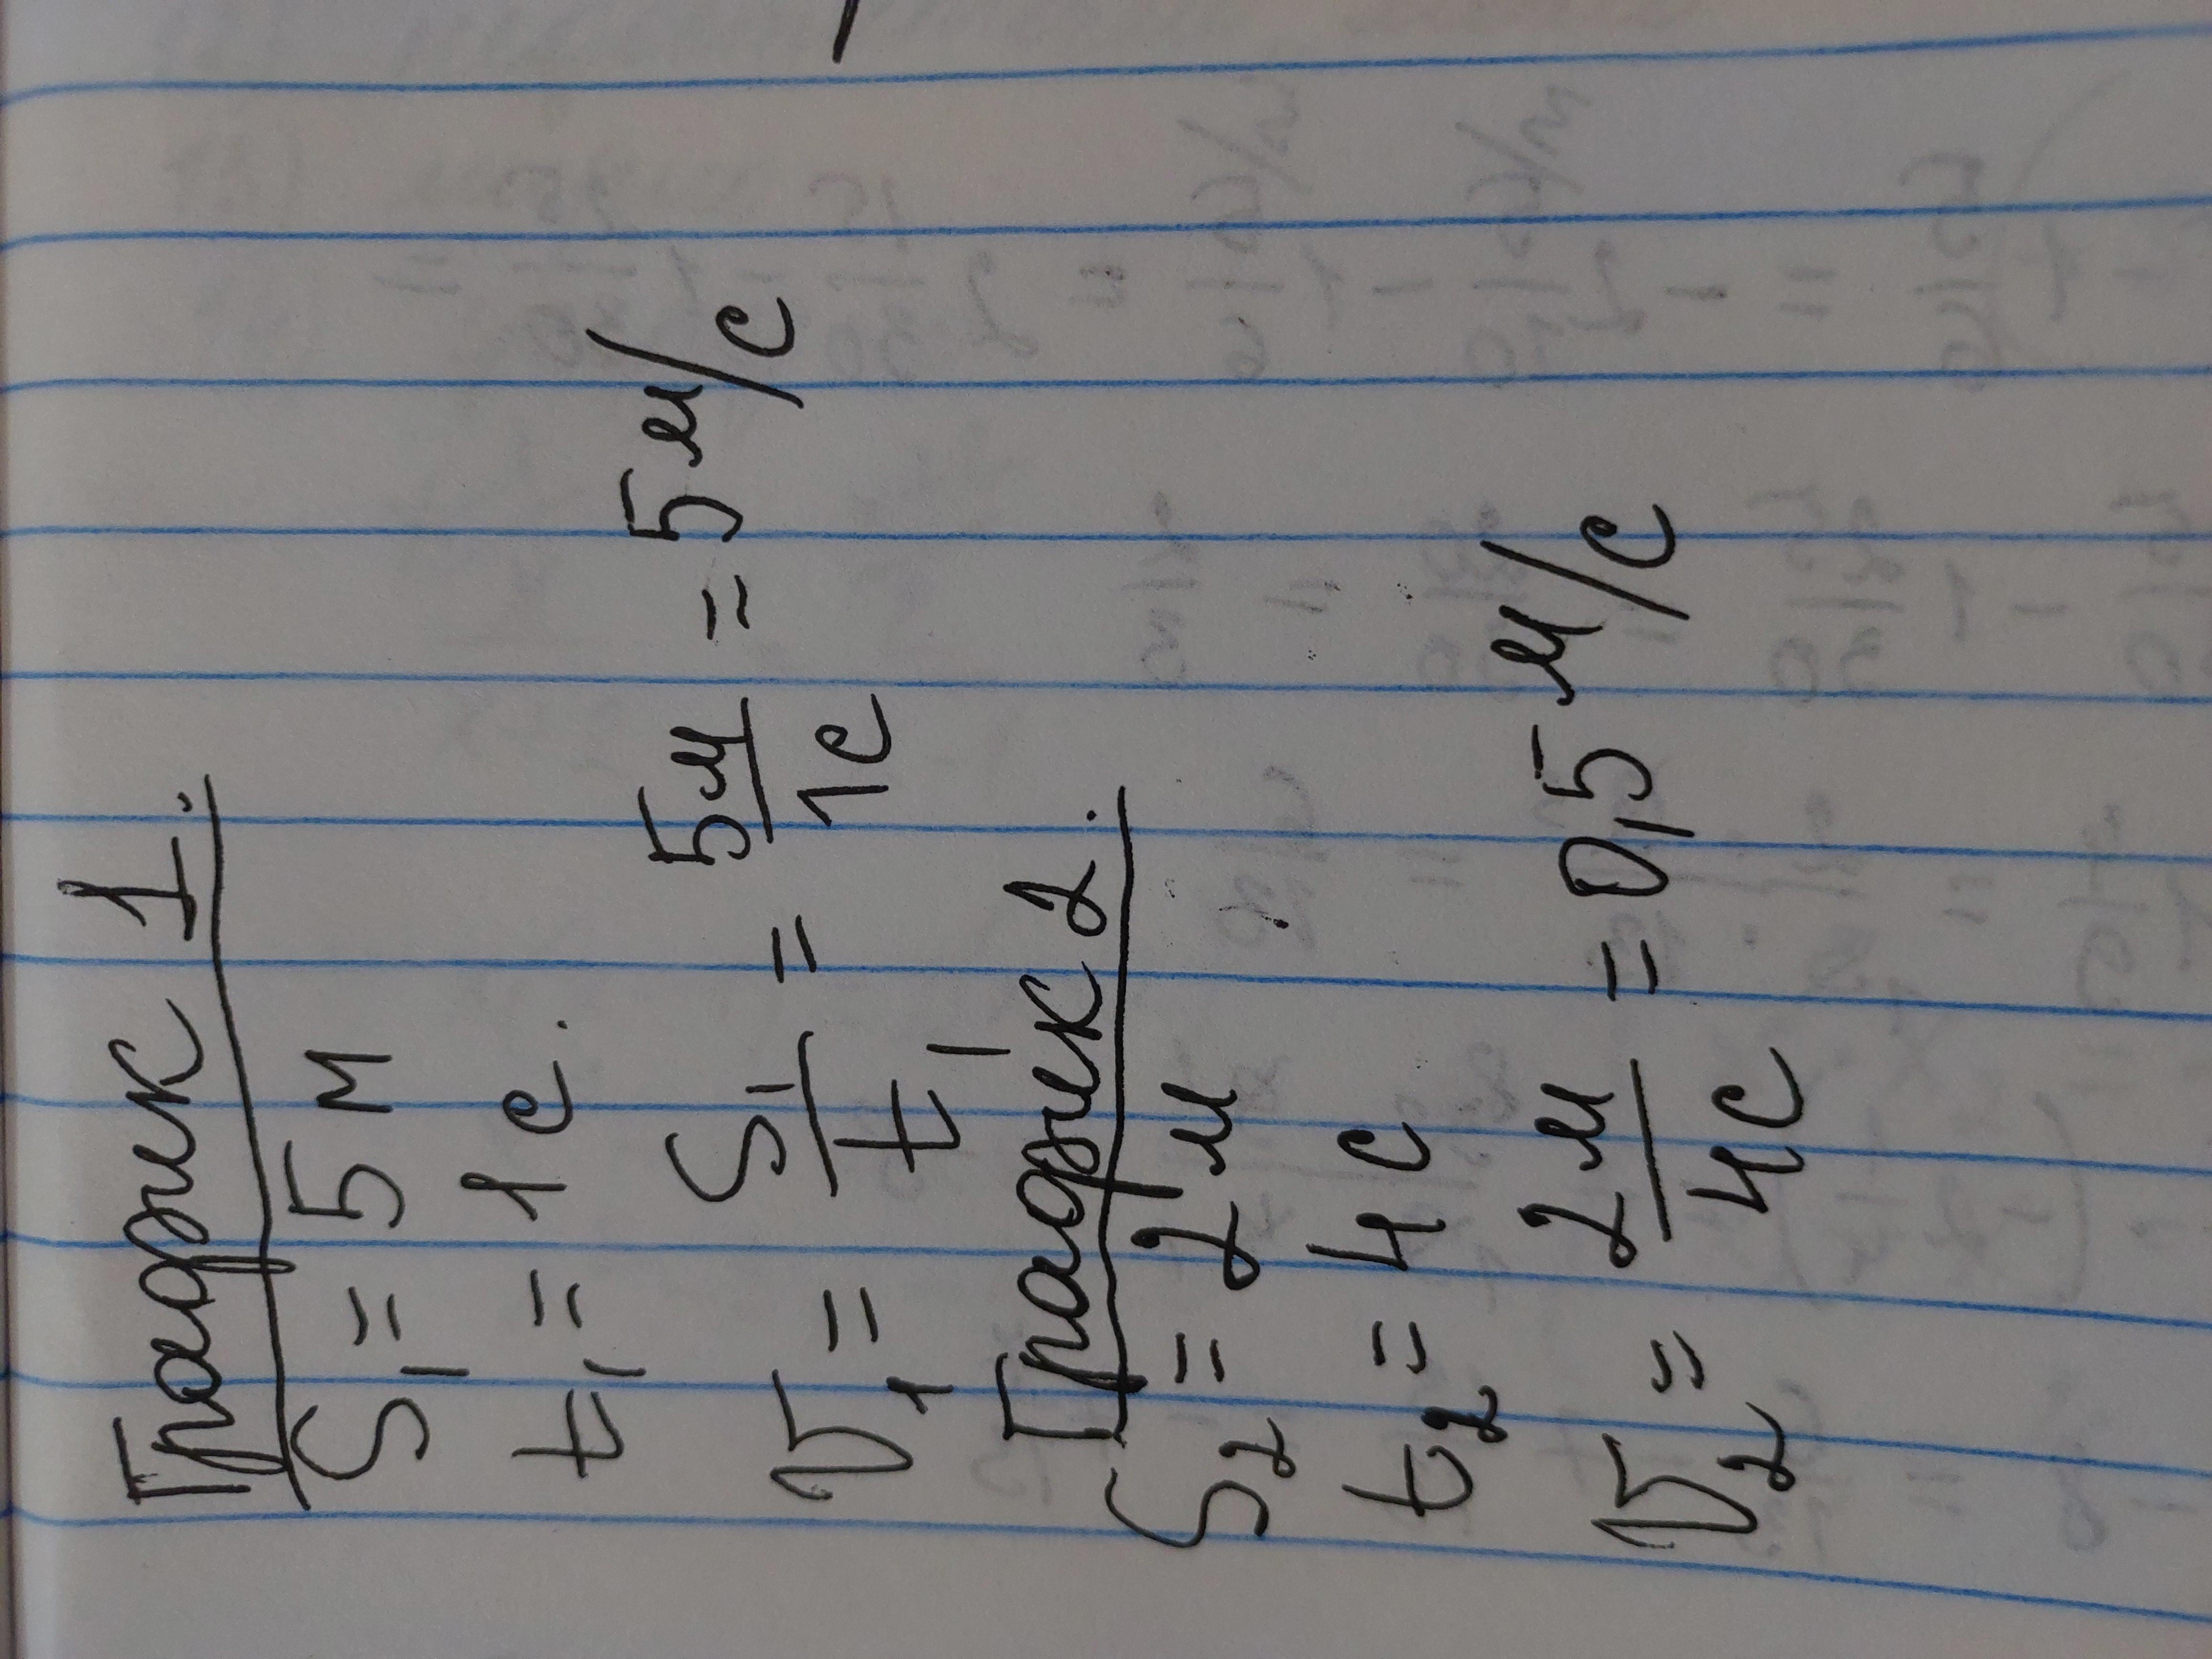 График 1.
S₁ = 5 м
t₁ = 1 с.
v₁ = S₁/t₁ = 5м/1с = 5 м/с
График 2.
S₂ = 2 м
t₂ = 4 с
v₂ = 2м/4с = 0,5 м/с